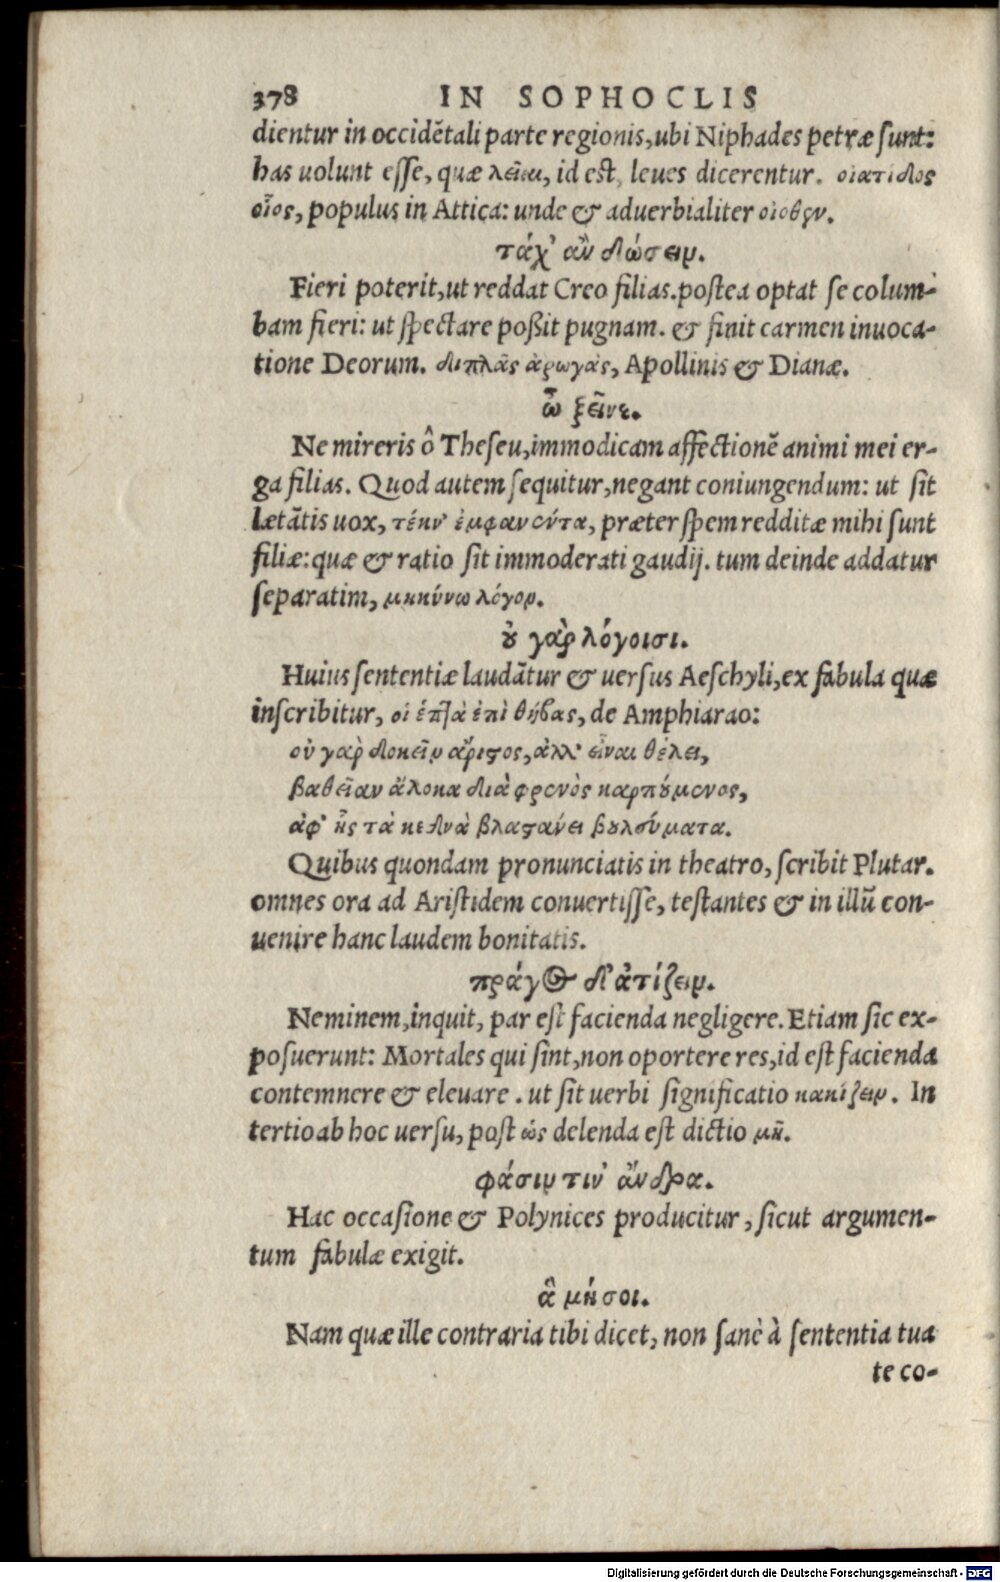 378 IN SOPHOCLIS
dientur in occidētali parte regionis, ubi Niphades petræ sunt:
has uolunt esse, quæ λεῖαι, id est, leues dicerentur. οἰατιδος
οἶος, populus in Attica: unde & aduerbialiter οἰοθεν.
τάχ' ἂν δώσειν.
Fieri poterit, ut reddat Creo filias. postea optat se colum-
bam fieri: ut spectare poßit pugnam. & finit carmen inuoca-
tione Deorum. διπλᾶς ἀρωγὰς, Apollinis & Dianæ.
ὦ ξεῖνε.
Ne mireris ô Theseu, immodicam affectionē animi mei er-
ga filias. Quod autem sequitur, negant coniungendum: ut sit
lætātis uox, τέκν' ἐμφανούντα, præter spem redditæ mihi sunt
filiæ: quæ & ratio sit immoderati gaudij. tum deinde addatur
separatim, μηκύνω λόγον.
ȣ̓ γὰρ λόγοισι.
Huius sententiæ laudātur & uersus Aeschyli, ex fabula quæ
inscribitur, οἱ ἑπτὰ ἐπὶ θήβας, de Amphiarao:
οὐ γὰρ δοκεῖν ἄριστος, ἀλλ' εἶναι θέλει,
βαθεῖαν ἄλοκα διὰ φρενὸς καρπȣ́μενος,
ἀφ' ἧς τὰ κεδνὰ βλαστάνει βȣλεύματα.
Quibus quondam pronunciatis in theatro, scribit Plutar.
omnes ora ad Aristidem conuertisse, testantes & in illū con-
uenire hanc laudem bonitatis.
πράγος δ' ἀτίζειν.
Neminem, inquit, par est facienda negligere. Etiam sic ex-
posuerunt: Mortales qui sint, non oportere res, id est facienda
contemnere & eleuare. ut sit uerbi significatio κακίζειν. In
tertio ab hoc uersu, post ὡς delenda est dictio μὴ.
φάσιν τιν' ἄνδρα.
Hac occasione & Polynices producitur, sicut argumen-
tum fabulæ exigit.
ἃ μήσοι.
Nam quæ ille contraria tibi dicet, non sanè à sententia tua
te co-
Digitalisierung gefördert durch die Deutsche Forschungsgemeinschaft - DFG